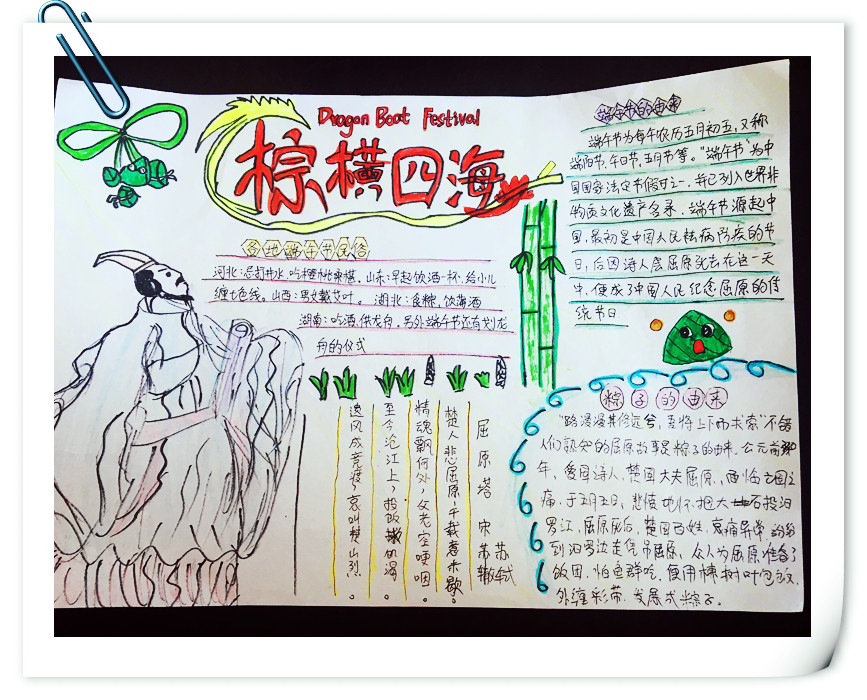 Dragon Boat Festival
棕横四海
端午节的由来
端午节为每年农历五月初五,又称
端阳节、午日节、五月节等。"端午节"为中
国国家法定节假日之一,并已列入世界非
物质文化遗产名录,端午节源起中
国,最初是中国人民祛病防疾的节
日,后因诗人屈原死去在这一天
中,便成了中国人民纪念屈原的传
统节日
各地端午节风俗
河北:忌打井水,吃樱桃桑椹。山东:早起饮酒一杯,给小儿
缠七色线。山西:男女戴艾叶。湖北:食粽,饮菖酒
湖南:吃酒,供龙舟,另外端午节还有划龙
舟的仪式
屈原塔 宋 苏轼 苏辙
楚人悲屈原,千载意未歇。
精魂飘何处,父老空哽咽。
至今沧江上,投饭救饥渴。
遗风成竞渡,哀叫楚山裂。
粽子的由来
"路漫漫其修远兮,吾将上下而求索"不错
人们熟知的屈原故事是粽子的由来。公元前
年,爱国诗人,楚国大夫屈原,面临亡国之
痛,于五月五日,悲愤地怀抱大石投汨
罗江,屈原死后,楚国百姓,哀痛异常,纷纷
到汨罗边去凭吊屈原,众人为屈原准备了
饭团,怕鱼群吃,便用楝树叶包饭,
外缠彩带,发展成粽子。